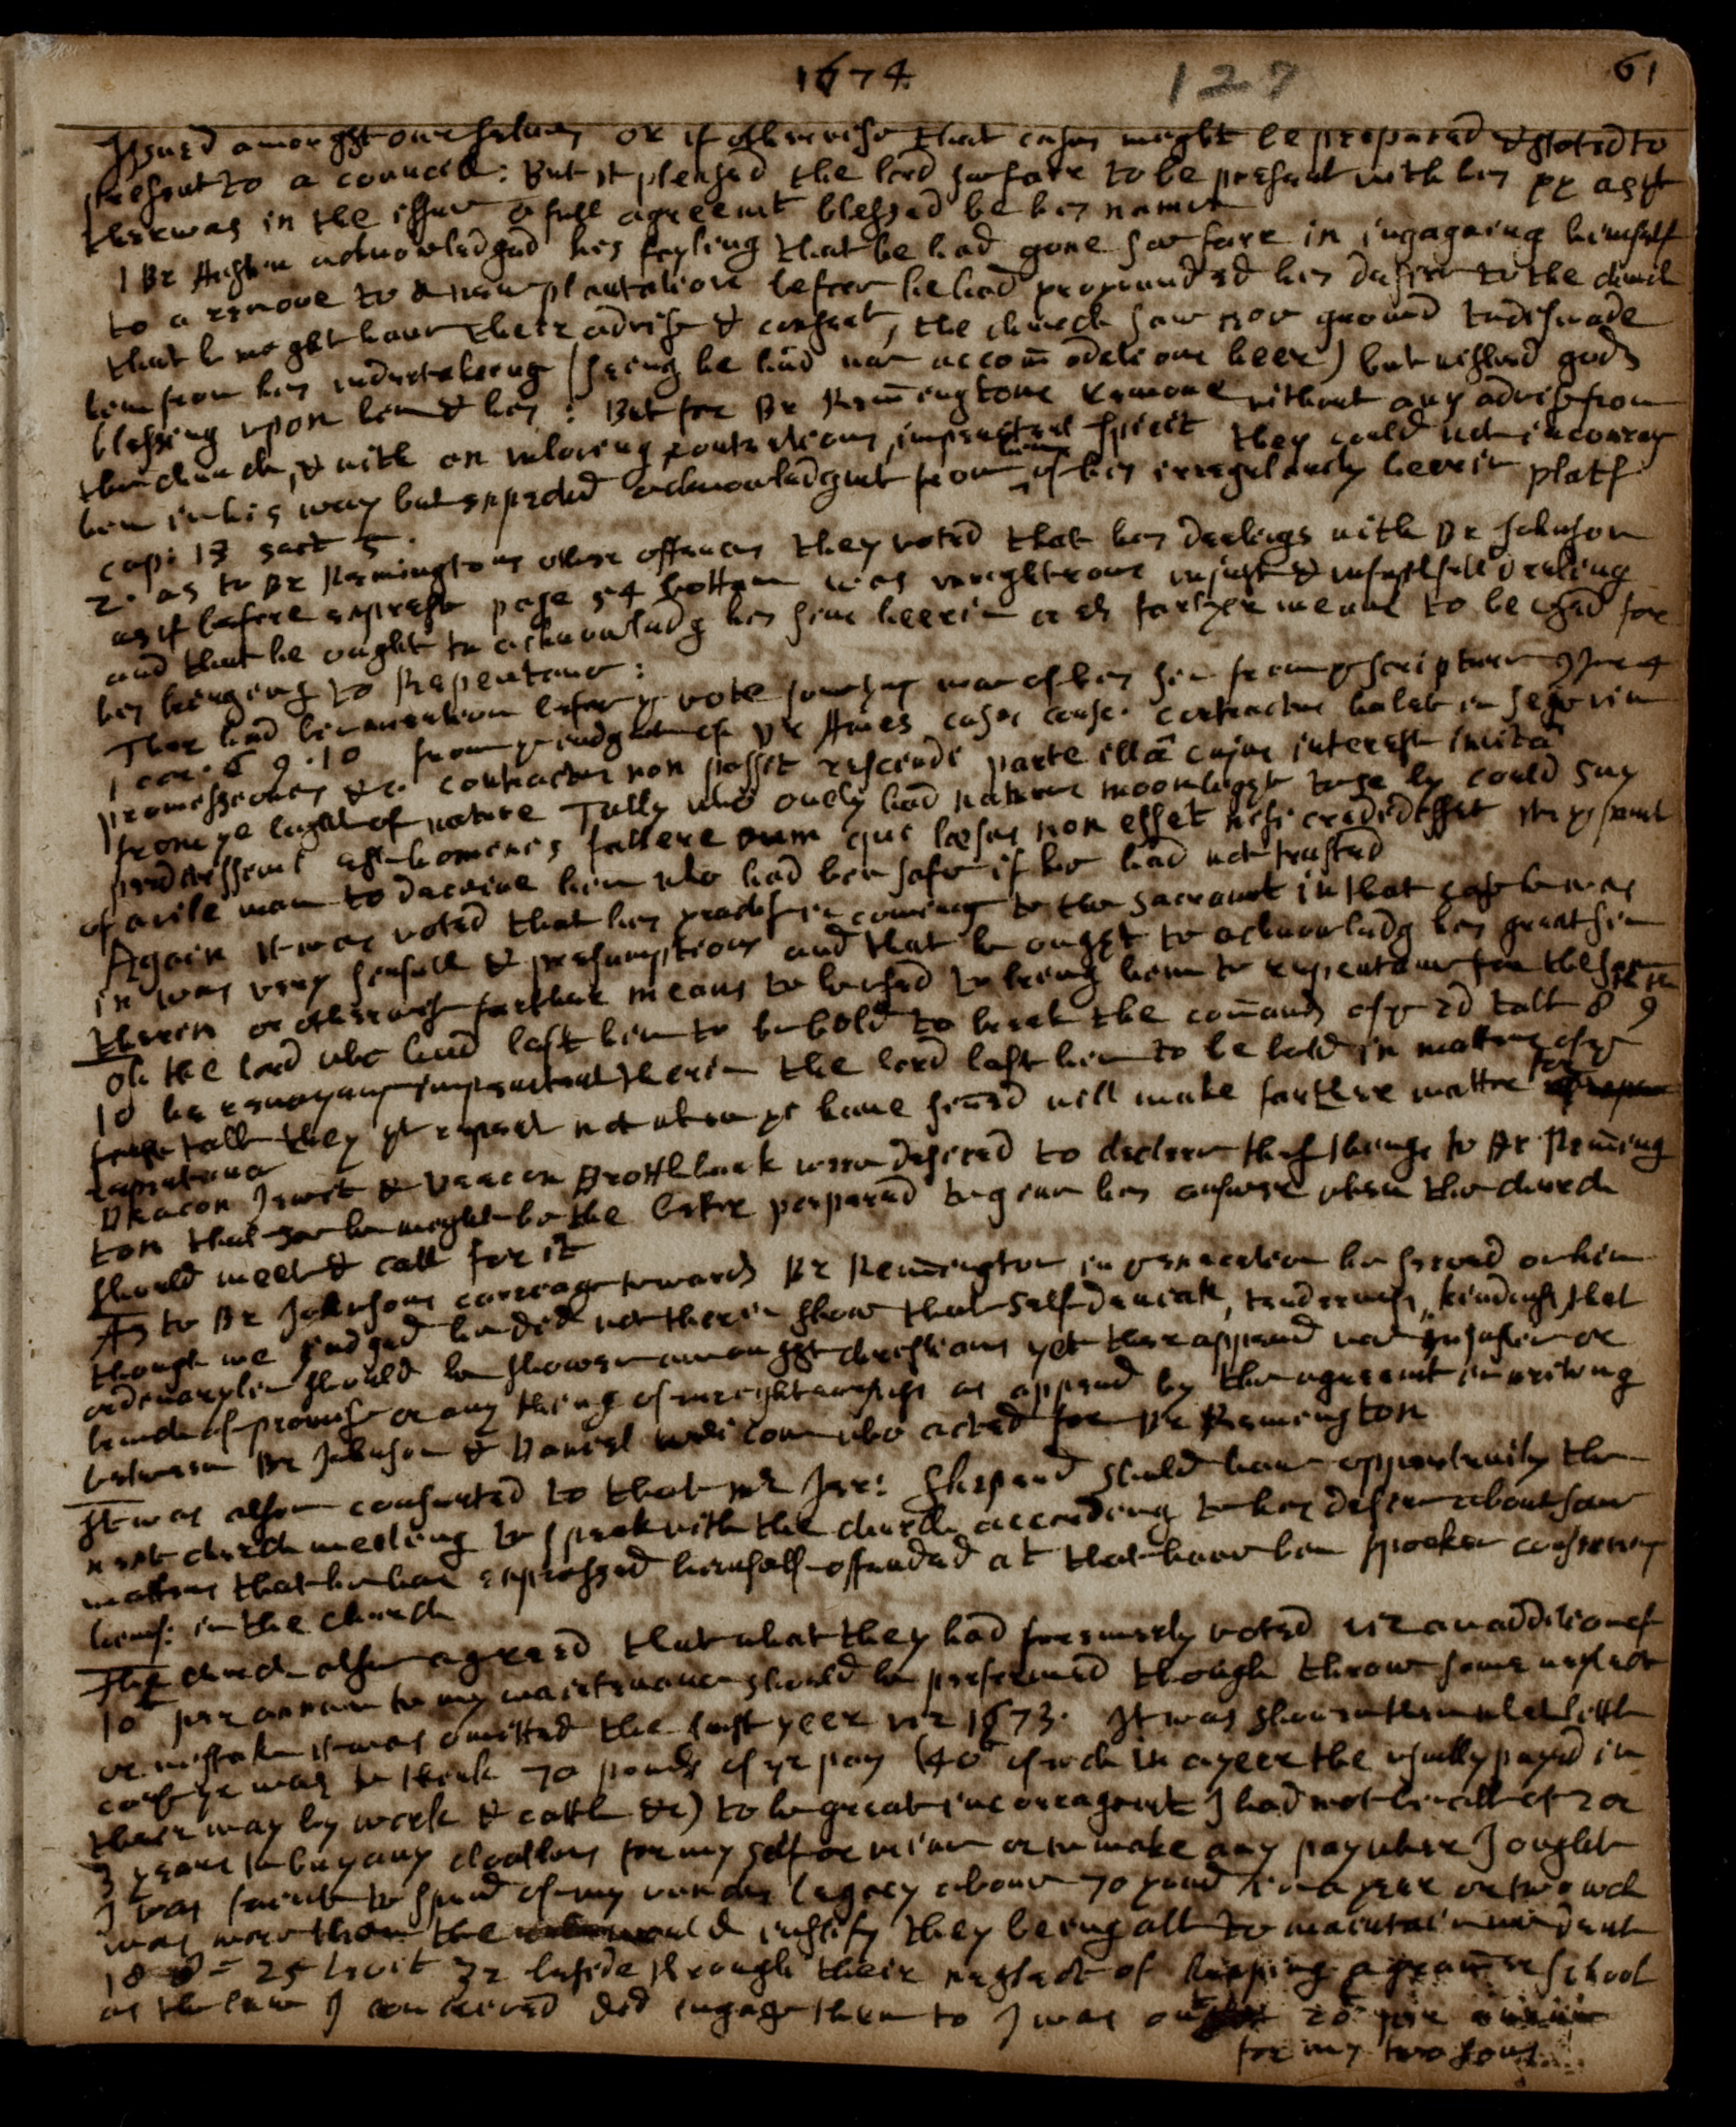 1674. 127 61
Issued amongst our selves or if otherwise that cases might be prepared & stated to
present to a councell: But it pleased the lord so farre to be present with his
there was in the issue a full agreemt blessed be his name
1 Br Austin acknowledged his fayling that he had gone so farre in ingageing himself
to a remove to a new plantatione before he had propounded his desire to the church
that he might have their advise & consent, the church saw noe ground to disswade
him from his undertakeing (seing he had noe accom̄odatione heer) but wished gods
blessing upon him & his: But for Br Rem̄ingtons Remove without any advise from
the church, & with an unloving, contentious, impenitent spirit they could not incourag
him in his way but expected acknowledgmt from him of his irregularity heerin platf
cap: 13 sect 5.
2. as to Br Remingtons other offences they voted that his dealings with Br Johnson
as if before exprest page 54 bottom was unrighteous unjust & unfaithfull dealing
and that he ought to acknowledg his sinne heerin or els farther meanes to be used for
his bringing to Repentance:
Ther had bin mention before ye vote somthing was of his sin from ye scripture
1 cor. 6 9. 10 from ye judgmt of Dr Ames cases consc. contractus habet in se
promissiones &c. contractus non possit rescindi parte illâ cujus interest invitâ
from ye light of nature Tully who onely had natures moonlight to se by could say
perditissimi est hominis fallere eum qui læsus non esset nisi credidisset
of a vile man to deceive him who had ben safe if he had not trusted
Again it was voted that his practise in comeing to the sacramt in that case he was
in was very sinfull & presumptious and that he ought to acknowledg his great sin
therein or otherwise farther means to be used to bring him to repentance for these sins
oh the lord who hand left him to be bold to break the com̄ands of ye 2d table 8 9
10 he remayning impenitent therin the lord left him to be bold in matters of ye
first table they yt repent not when yy have sinned will make farther matter for
repentance
Deacon Jewet & Deacon Brocklbank were desired to declare these things to Br Rem̄ing
ton that soe he might be the better prepared to give his answer when the church
should meet & call for it
As to Br Johnsons carriage towards Br Rem̄ington in ye execution he served on him
though we judged he did not therin show that selfdeniall, tendernes, kindnes, that
ordinaryly should be showen amongst christians yet ther appeared noe injustice or
breach of promise or any thing of unrighteousnes as appeared by the agreemt in writing
between Br Johnson & Daniel Wicom who acted for Br Remington
It was also consented to that mr Jer: Shepard should have opportunity the
next church meeting to speak with the church according to his desire about some
matters that he had expressed himself offended at that have ben spoken conserning
him: in the church
The church also agreed that what they had formerly voted viz an addition of
10£ per annum to my maintenance should be performed though throw some neglect
or mistake it was omitted the last year viz 1673. It was showen them what little
cause yr was to think 70 pounds of yr pay (40£ of wch in a yeer the usually payd in
their way by work & cattle &c) to be great incouragment I had not bin able of 2 or
3 years to buy any cloathing for my self or mine or to make any pay where I ought
I was faint to spend of my own legacy about 70 pound in a year or two wch
was more then the would justify they being all to maintain
18 25 beside through their neglect of keeping a gram̄er school
as the law I conceived did ingage them to I was out 20£ per annum
for my two sons